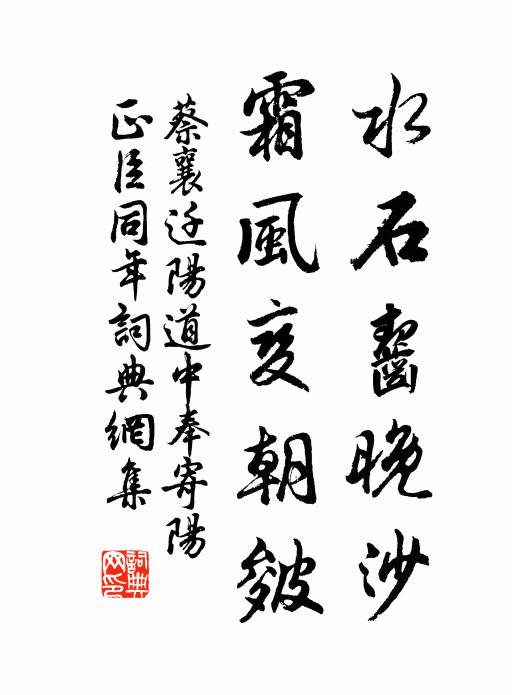 水石齧晚沙
霜風變朝皴
蔡襄迂陽道中奉寄陽
正臣同年詞典網集
詞典网印